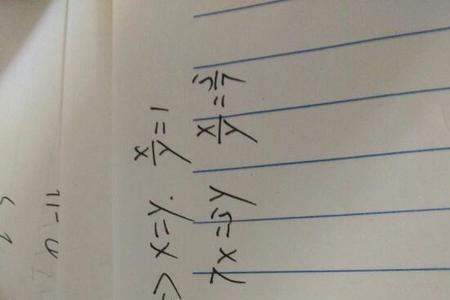 ⇒ x=y. x/y=1
7x=5y x/y=5/7